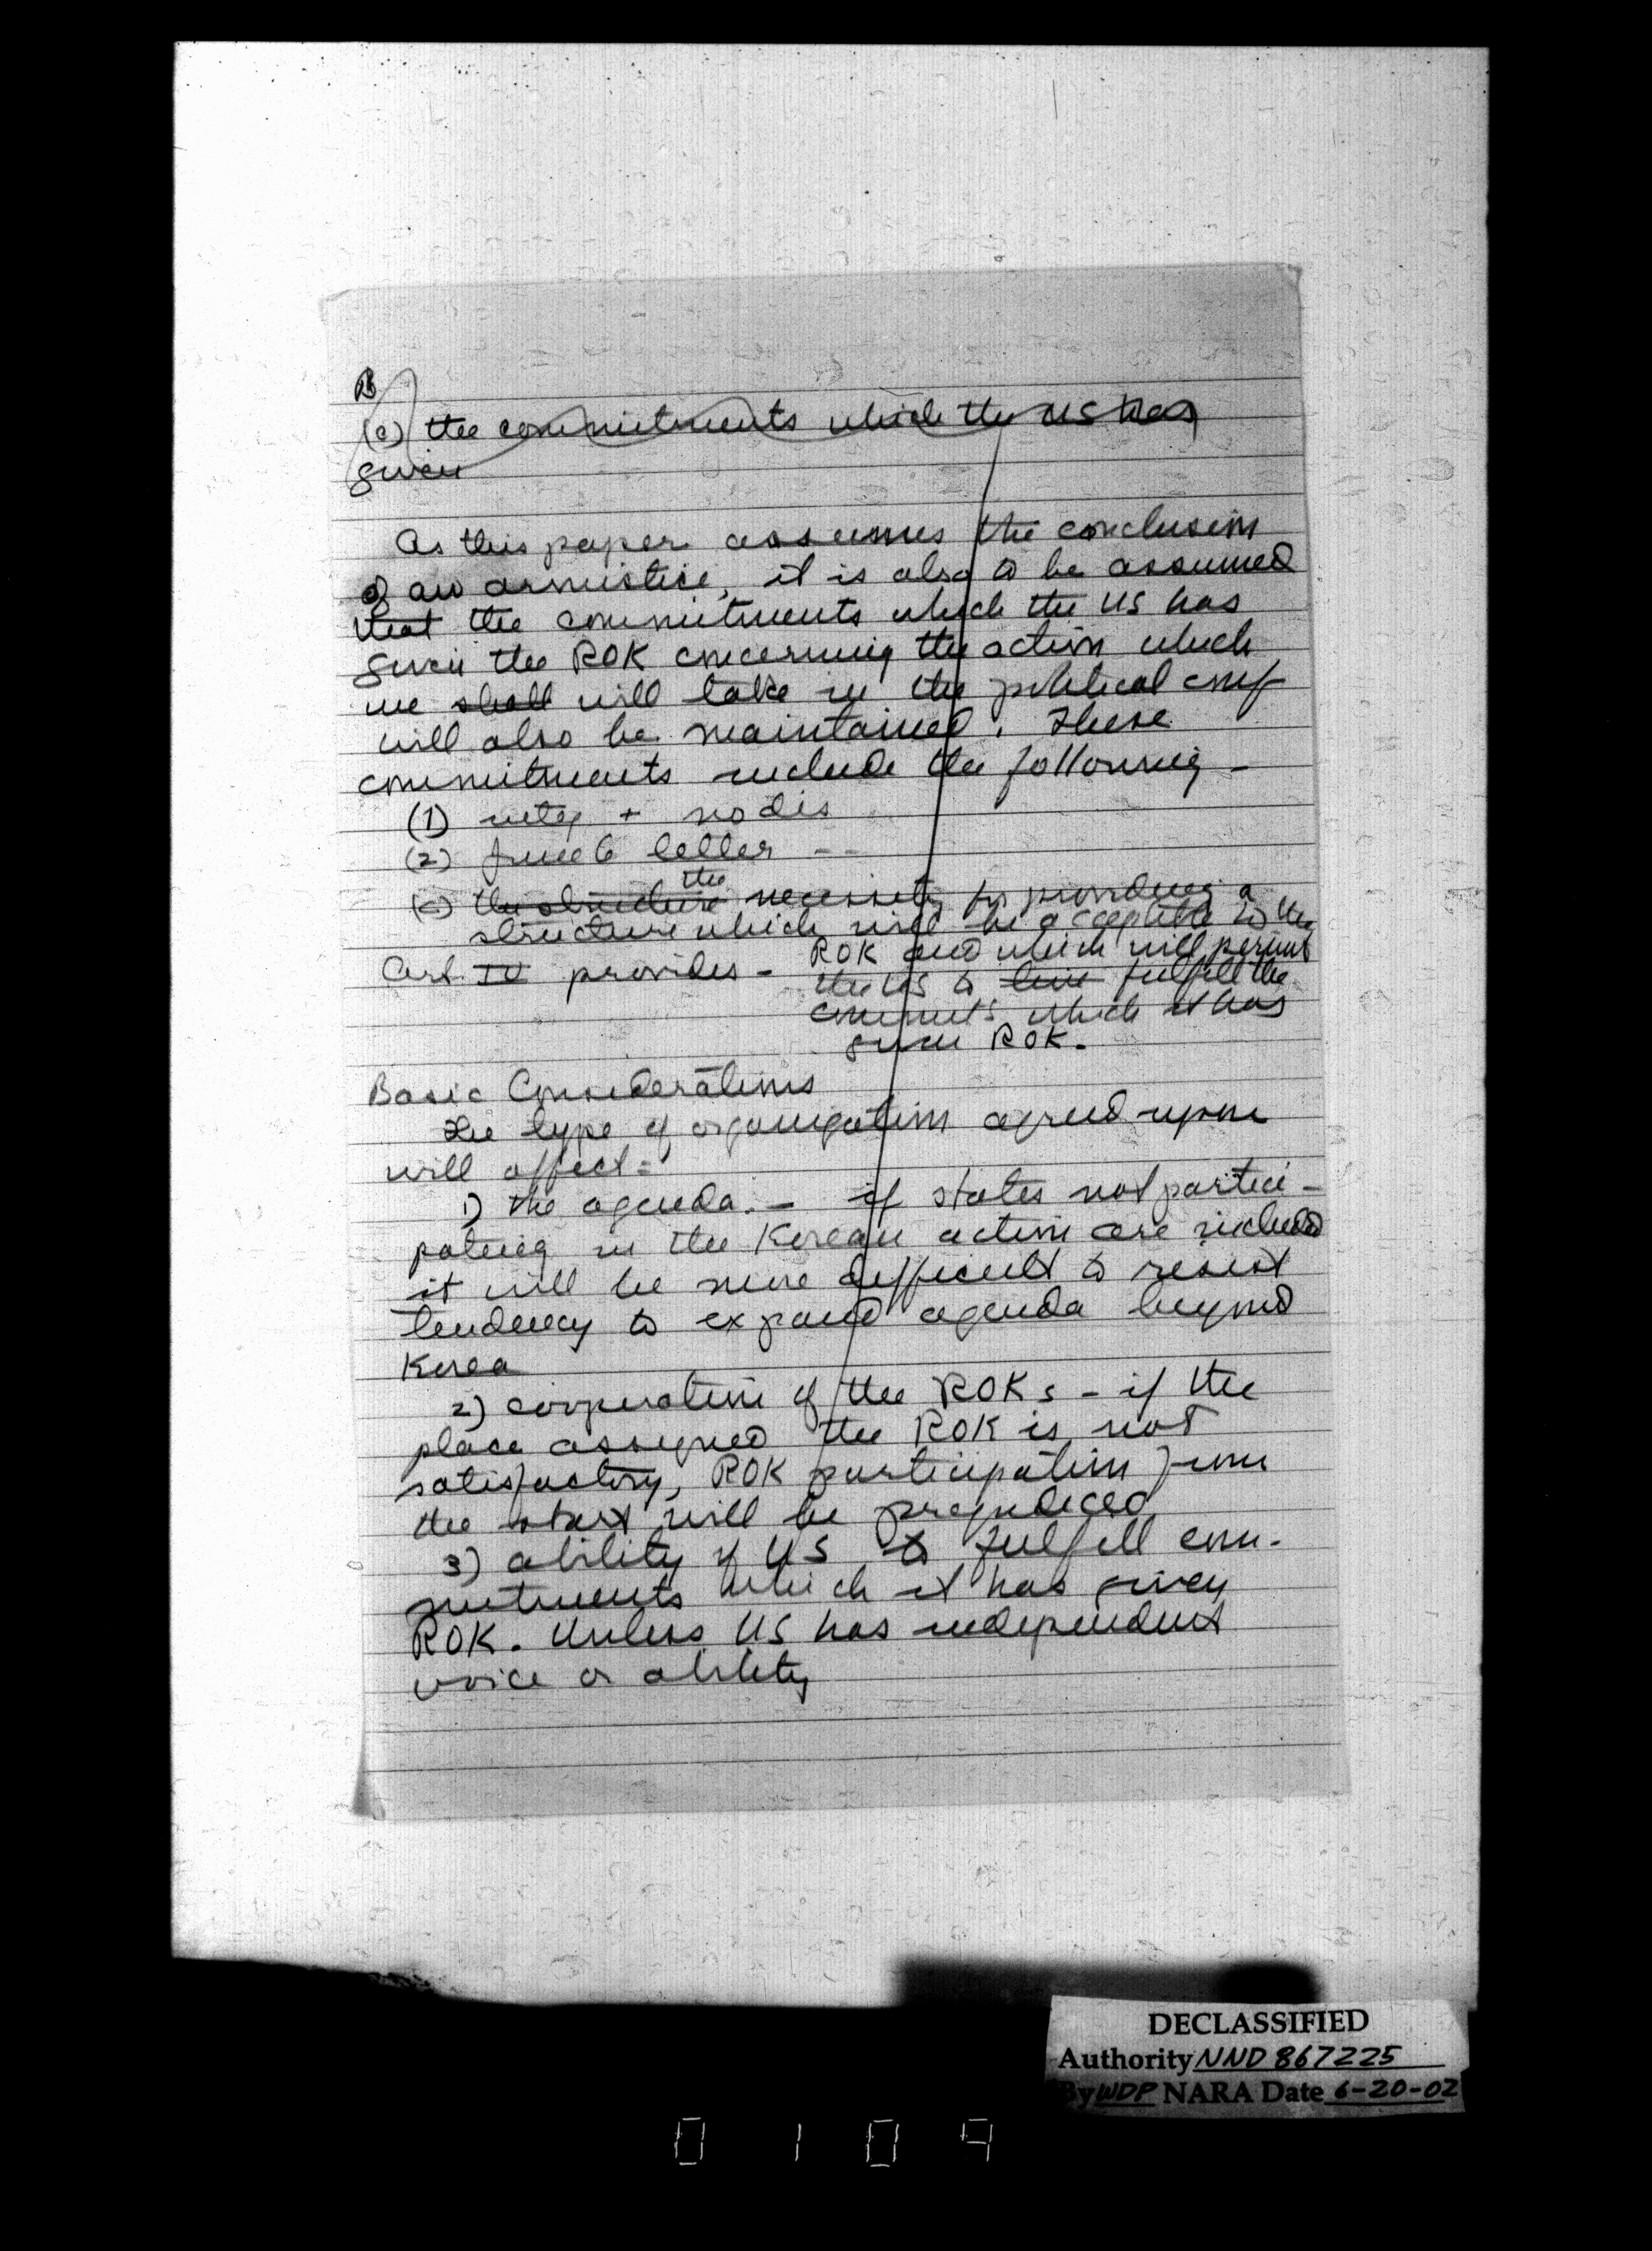 B
(c) the commitments which the US has
given
As this paper assumes the conclusion
of an armistice, it is also to be assumed
that the commitments which the US has
given the ROK concerning the action which
we shall will take in the political conf
will also be maintained. These
commitments include the following -
(1)
(2) June 6 letter --
(c) the structure the necessity for providing a
structure which will be acceptable to the
ROK and which will permit
Art. IV provides -
the US to fulfill the
commits which it has
given ROK.
Basic Considerations
The type of organization agreed upon
will affect:
1) the agenda. - if states not partici-
pating in the Korean action are included
it will be more difficult to resist
tendency to expand agenda beyond
Korea
2) cooperation of the ROKs - if the
place assigned the ROK is not
satisfactory, ROK participation from
the start will be prejudiced
3) ability of US to fulfill com-
mitments which it has given
ROK. Unless US has independent
voice or ability
DECLASSIFIED
Authority NND 867225
By WDP NARA Date 6-20-02
0109